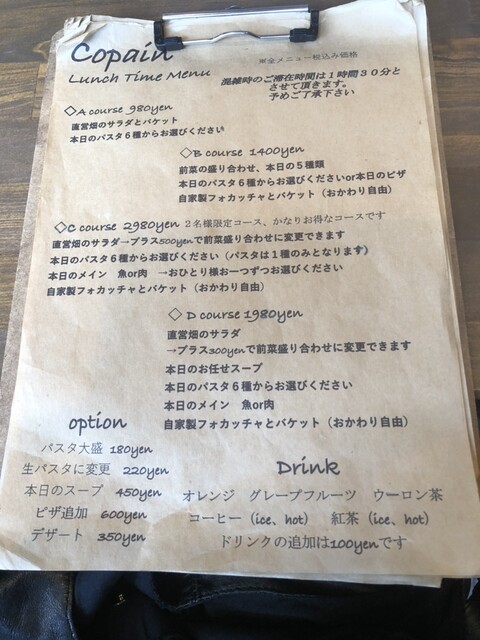 Copain
Lunch Time Menu
※全メニュー税込み価格
混雑時のご滞在時間は１時間３０分と
させて頂きます。
予めご了承下さい
◇A course 980yen
直営畑のサラダとバケット
本日のパスタ６種からお選びください
◇B course 1400yen
前菜の盛り合わせ、本日の５種類
本日のパスタ６種からお選びくださいor本日のピザ
自家製フォカッチャとバケット（おかわり自由）
◇C course 2980yen ２名様限定コース、かなりお得なコースです
直営畑のサラダ→プラス500yenで前菜盛り合わせに変更できます
本日のパスタ６種からお選びください（パスタは１種のみとなります）
本日のメイン　魚or肉　→おひとり様お一つずつお選びください
自家製フォカッチャとバケット（おかわり自由）
◇ D course 1980yen
直営畑のサラダ
→プラス300yenで前菜盛り合わせに変更できます
本日のお任せスープ
本日のパスタ６種からお選びください
本日のメイン　魚or肉
自家製フォカッチャとバケット（おかわり自由）
option
パスタ大盛 180yen
生パスタに変更 220yen
本日のスープ 450yen
ピザ追加 600yen
デザート 350yen
Drink
オレンジ　グレープフルーツ　ウーロン茶
コーヒー（ice、hot）　紅茶（ice、hot）
ドリンクの追加は100yenです